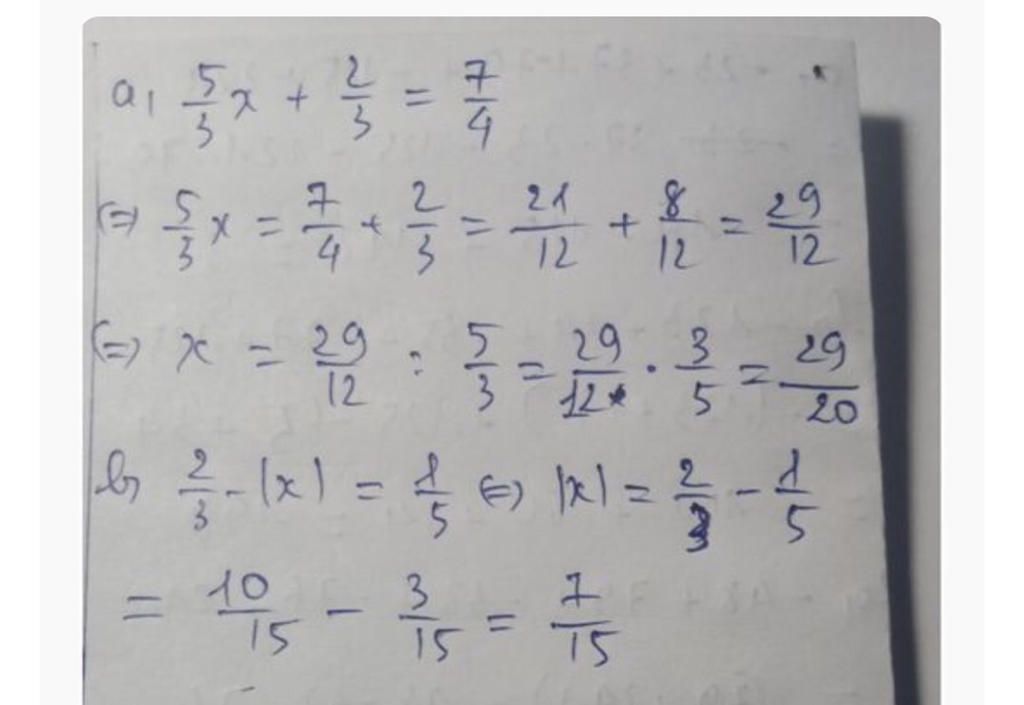 a, 5/3 x + 2/3 = 7/4
(=) 5/3 x = 7/4 + 2/3 = 21/12 + 8/12 = 29/12
(=) x = 29/12 : 5/3 = 29/12 . 3/5 = 29/20
b, 2/3 - |x| = 1/5 (=) |x| = 2/3 - 1/5
= 10/15 - 3/15 = 7/15